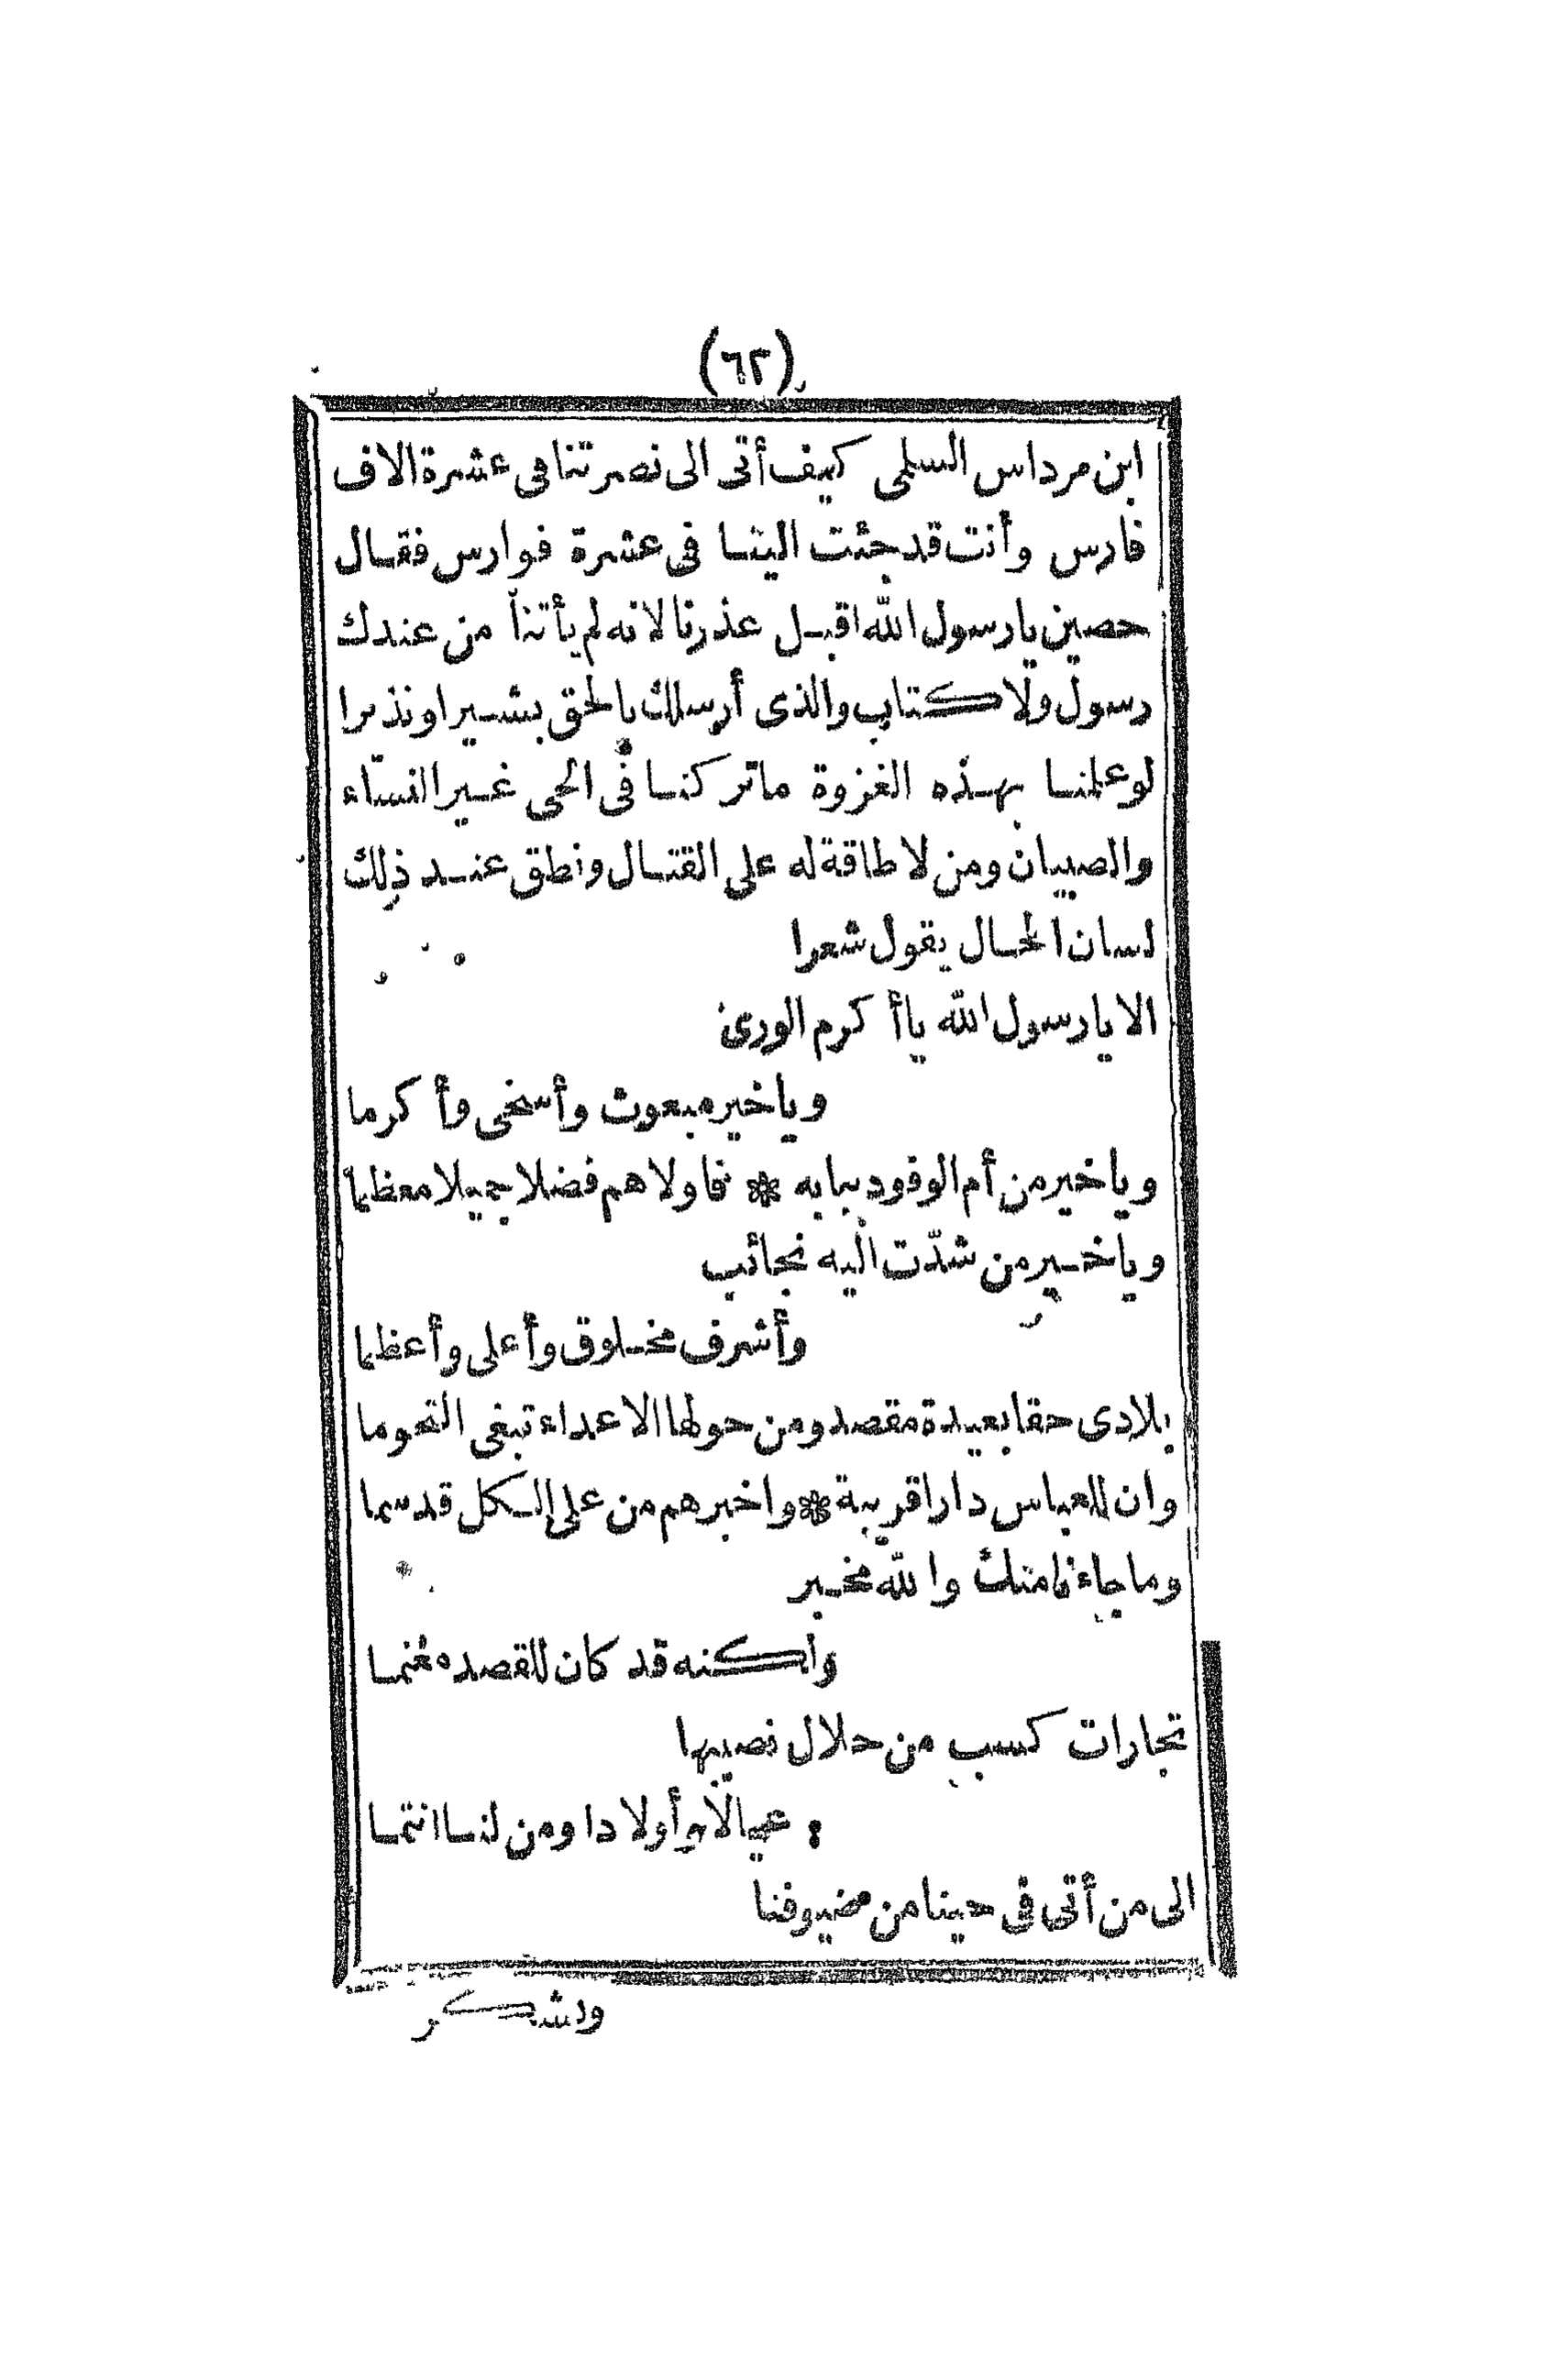 (٦٢)
ابن مرداس السلمى كيف أتى الى نصرتنا فى عشرة الاف
فارس وأنت قد جئت الينا فى عشرة فوارس فقال
حصين يا رسول الله اقبل عذرنا لانه لم يأتنا من عندك
رسول ولا كتاب والذى أرسلك بالحق بشيرا ونذيرا
لو علمنا بهذه الغزوة ما تركنا فى الحى غير النساء
والصبيان ومن لا طاقة له على القتال ونطق عند ذلك
لسان الحال يقول شعرا
الا يا رسول الله يا أكرم الورى
ويا خير مبعوث وأسخى وأكرما
ويا خير من أم الوفود ببابه * فاولاهم فضلا جميلا معظما
ويا خير من شدّت اليه نجائب
وأشرف مخلوق وأعلى وأعظما
بلادى حقا بعيدة مقصد ومن حولها الاعداء تبغى التحوما
وان للعباس دارا قريبة * واخبرهم من على الكل قد سما
وما جاءنا منك والله مخبر
ولكنه قد كان للقصد مغنما
تجارات كسب من حلال نصيبها
عيالا وأولادا ومن لنا انتما
الى من أتى فى حينا من ضيوفنا
ونشكر